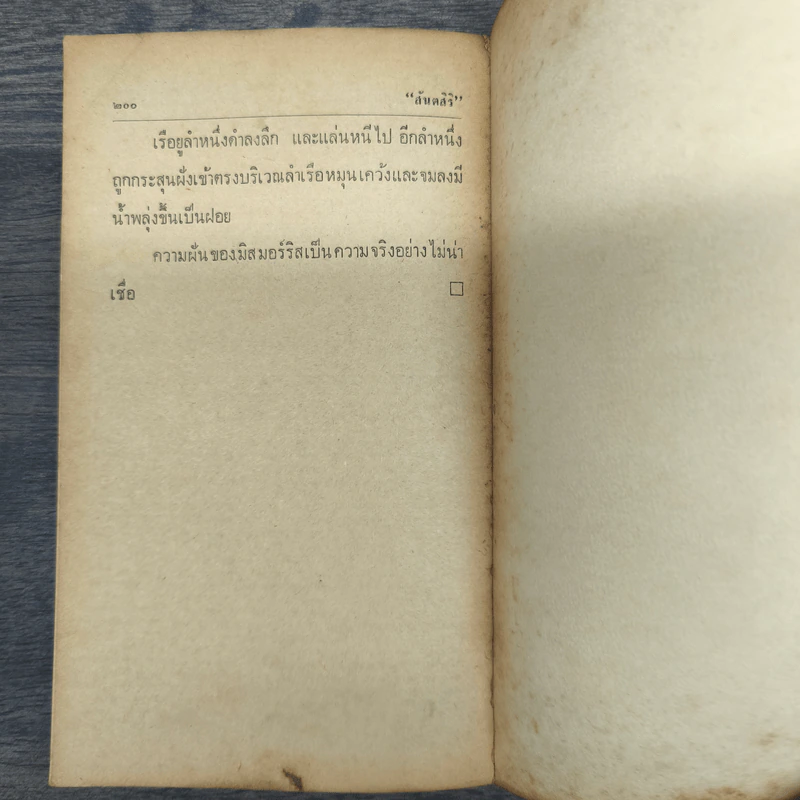 ๒๐๐ "สันตสิริ"
เรือยูลำหนึ่งดำลงลึก และแล่นหนีไป อีกลำหนึ่ง
ถูกกระสุนฝั่งเข้าตรงบริเวณลำเรือหมุนเคว้งและจมลงมี
น้ำพลุ่งขึ้นเป็นฝอย
ความฝันของมิสมอร์ริสเป็นความจริงอย่างไม่น่า
เชื่อ □